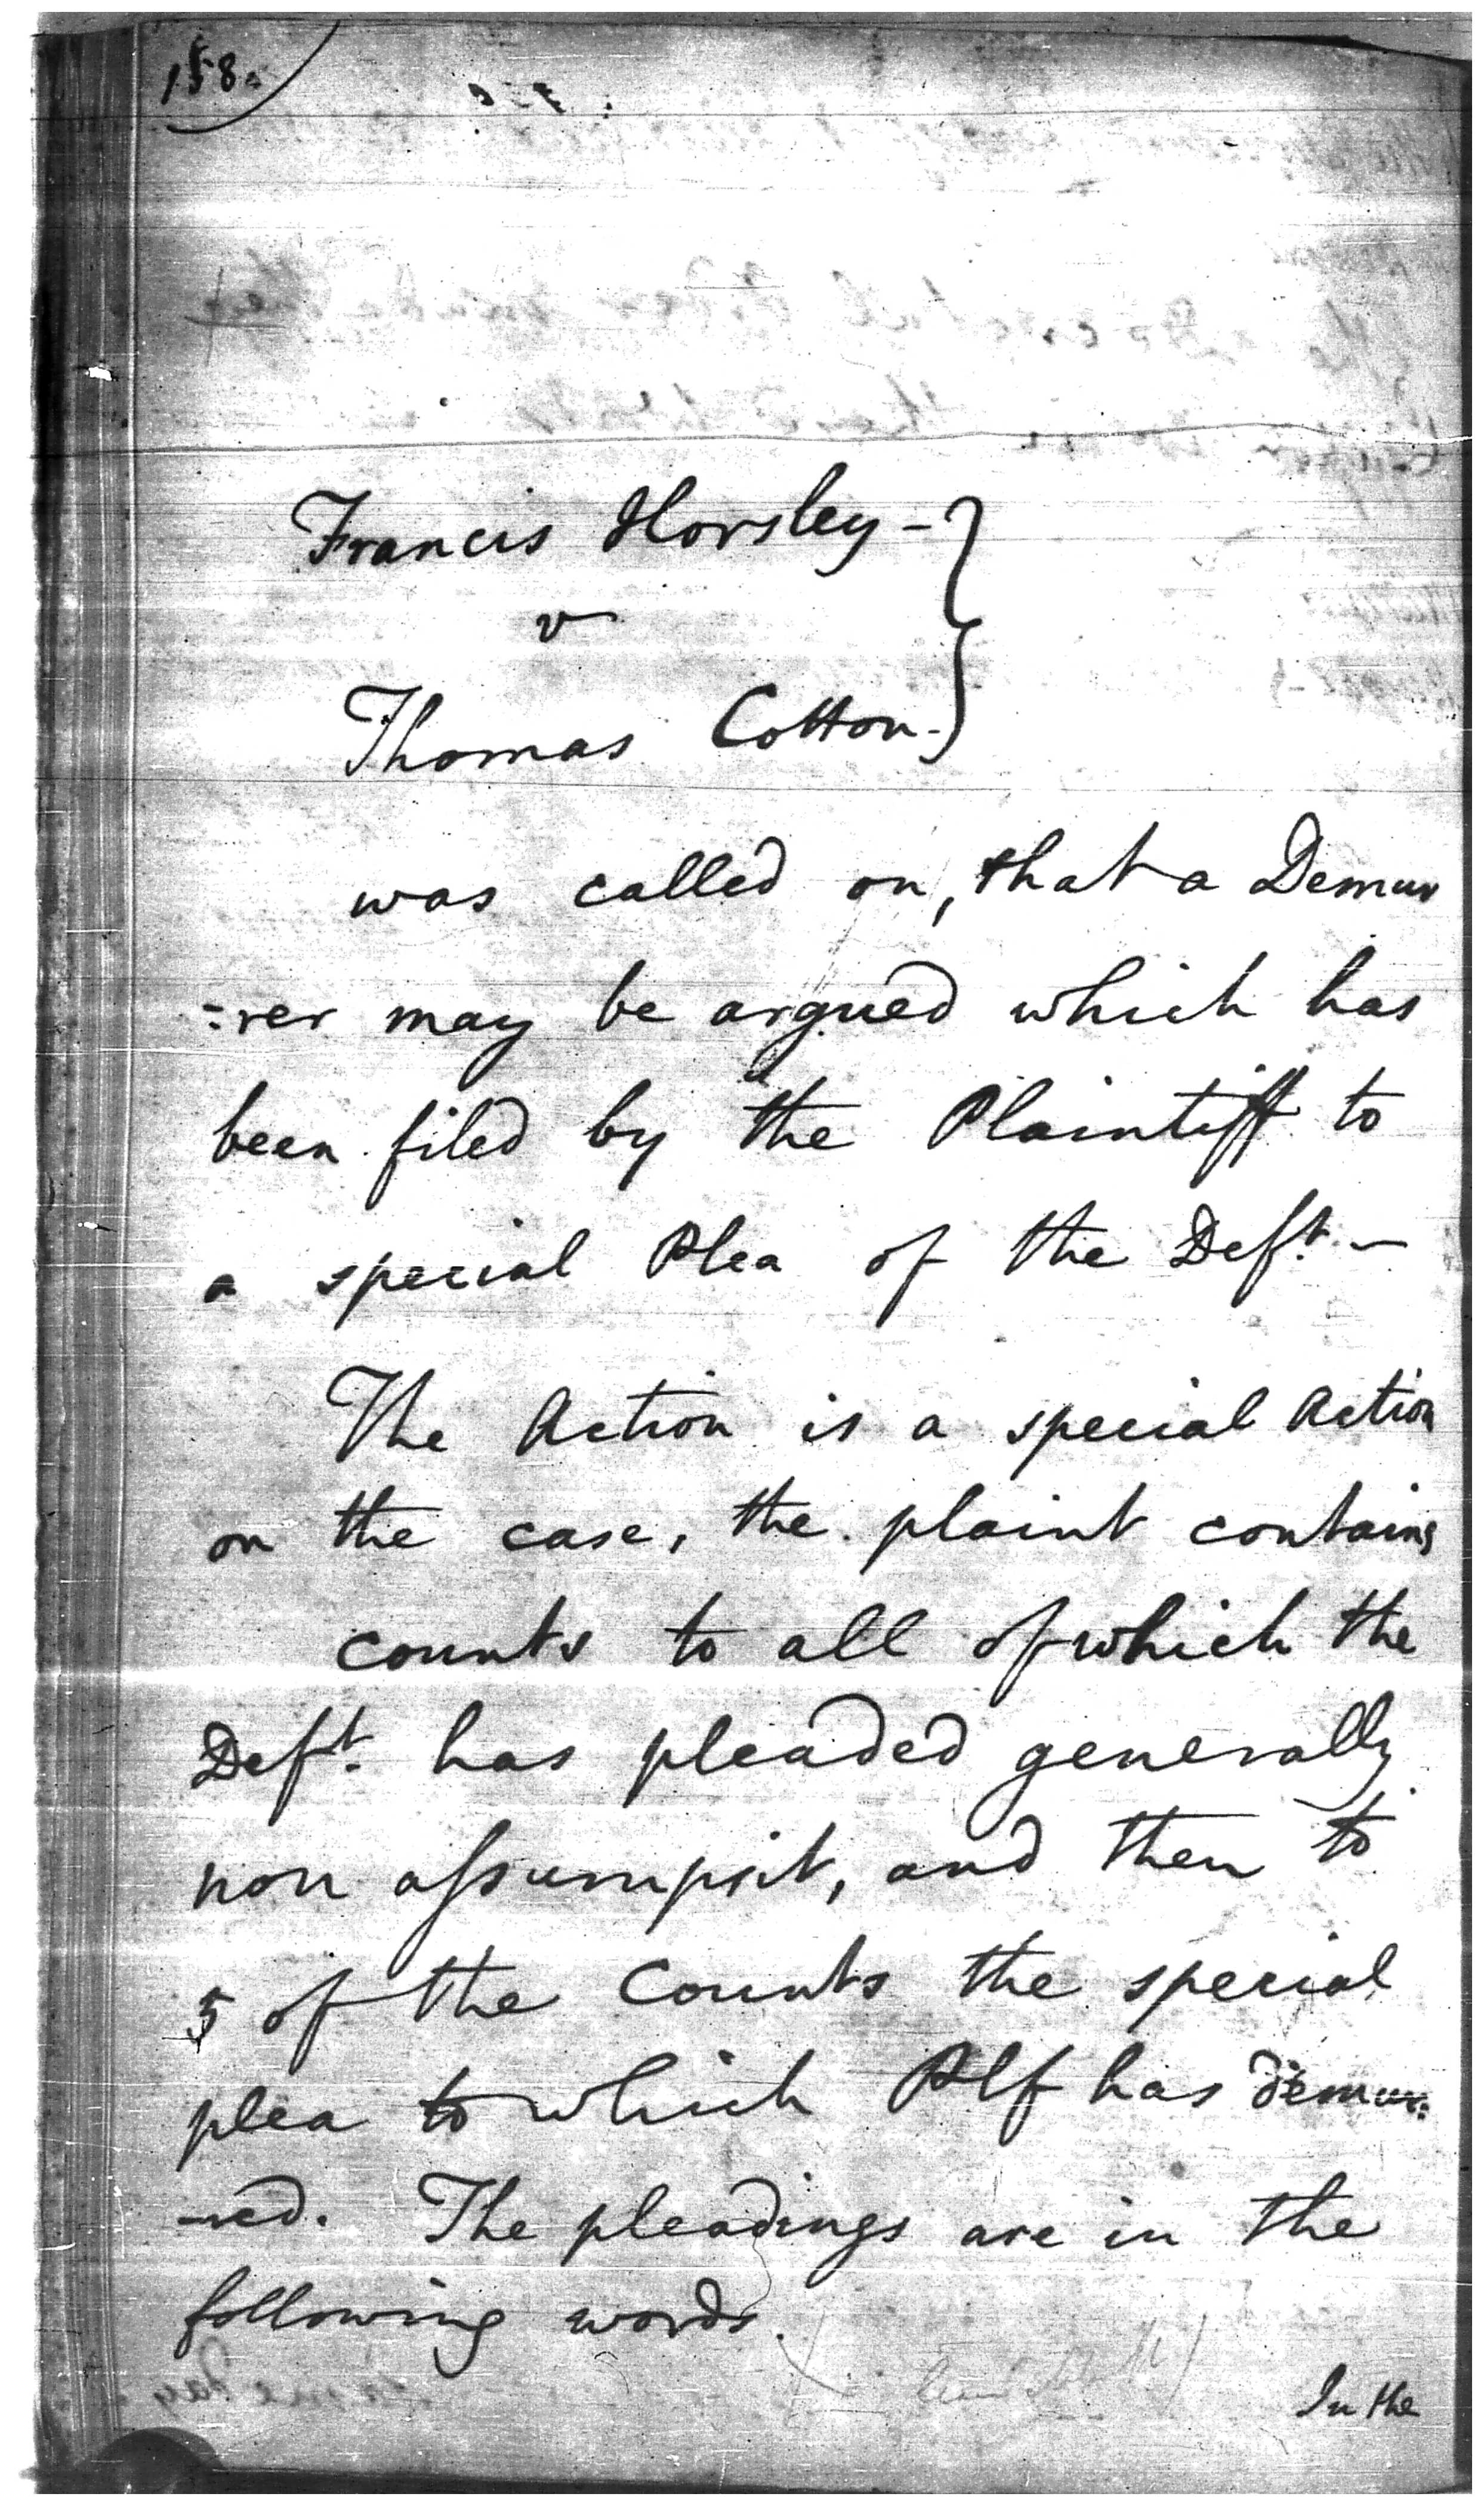 158.
Francis Horsley -
v
Thomas Cotton -
was called on, that a Demur
=rer may be argued which has
been filed by the Plaintiff to
a special Plea of the Deft. -
The Action is a special Action
on the case, the plaint contains
counts to all of which the
Deft. has pleaded generally
non assumpsit, and then to
5 of the Counts the special
plea to which Plf has demur=
-red. The pleadings are in the
following words.
In the